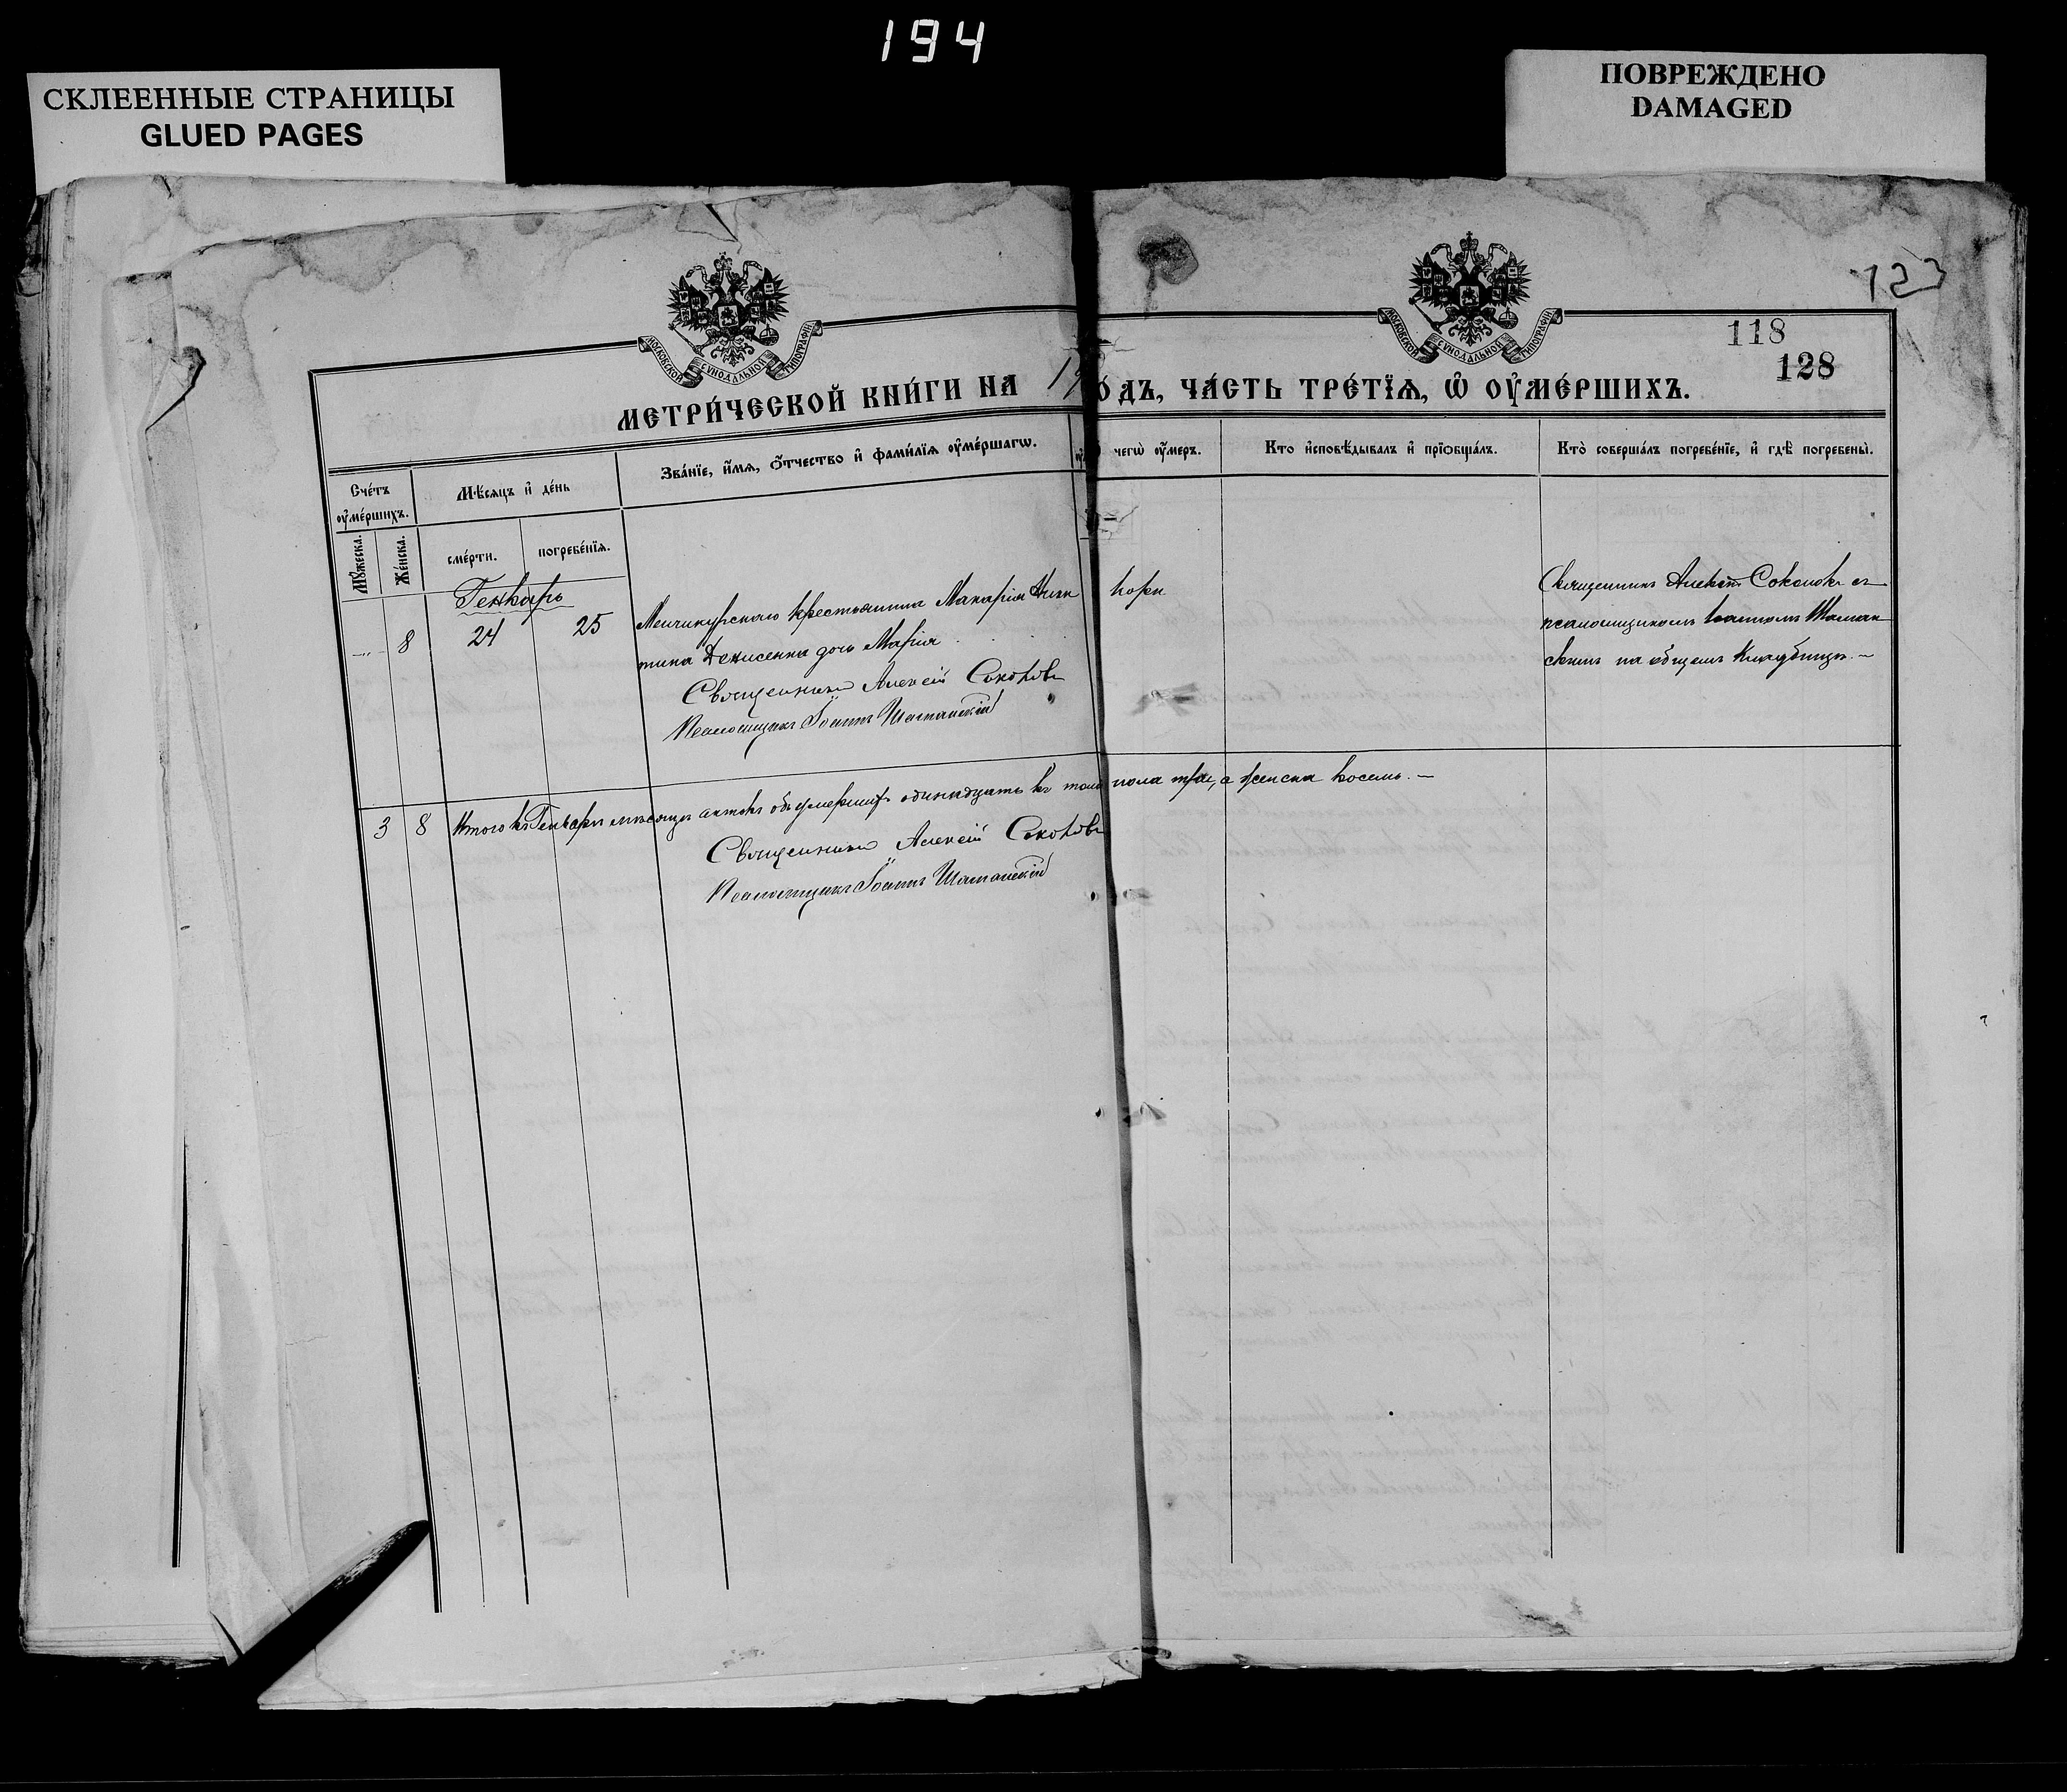 194
СКЛЕЕННЫЕ СТРАНИЦЫ
GLUED PAGES
ПОВРЕЖДЕНО
DAMAGED
123
118
128
МОСКОВСКОЙ СѴНОДАЛЬНОЙ ТИПОГРАФІИ
МОСКОВСКОЙ СѴНОДАЛЬНОЙ ТИПОГРАФІИ
МЕТРИ́ЧЕСКОЙ КНИ́ГИ НА 19
О́ДЪ, ЧА́СТЬ ТРЕ́ТЇѦ, Ѡ҆ ОУ҆МЕ́РШИХЪ.
Сче́тъ оу҆ме́ршихъ.
Мѣ́сяцъ и҆ де́нь
Зва́нїе, и҆́мѧ, о҆́тчество и҆ фами́лїѧ оу҆ме́ршагѡ.
чегѡ̀ оу҆́меръ.
Кто и҆сповѣ́дывалъ и҆ прїѡбща́лъ.
Кто̀ соверша́лъ погребе́нїе, и҆ гдѣ̀ погребены̀.
Мꙋ́жеска.
Же́нска.
сме́рти.
погребе́нїѧ.
Генварь
8 24 25 Менчикурскаго крестьянина Макарія Ники
тина Денисенка дочь Марія
Священникъ Алексій Соколовъ
Псаломщикъ Іоаннъ Шаманскій
кори
Священникъ Алексій Соколовъ съ
псаломщикомъ Іоанномъ Шаман
скимъ на общемъ кладбищѣ. –
3 8 Итого въ Генварѣ мѣсяцѣ актовъ объ умершихъ одинадцать въ том
пола три, а женска восемь. –
Священникъ Алексій Соколовъ
Псаломщикъ Іоаннъ Шаманскій